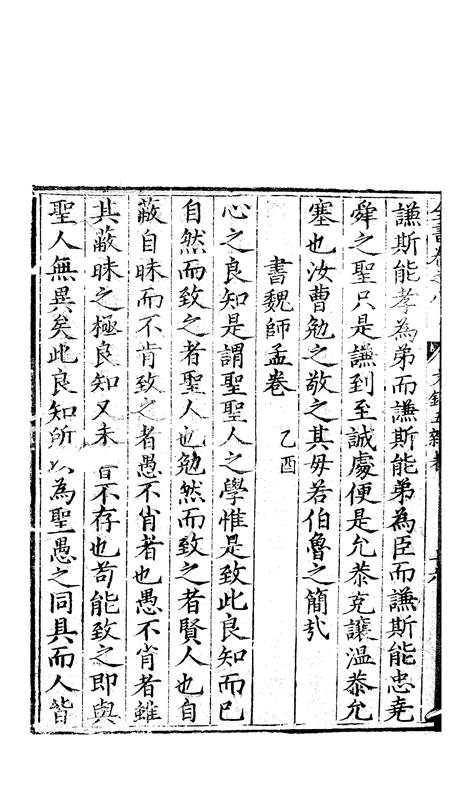 謙斯能孝為弟而謙斯能弟為臣而謙斯能忠堯
舜之聖只是謙到至誠處便是允恭克讓溫恭允
塞也汝曹勉之敬之其毋若伯魯之簡哉
書魏師孟卷 乙酉
心之良知是謂聖聖人之學惟是致此良知而已
自然而致之者聖人也勉然而致之者賢人也自
蔽自昧而不肯致之者愚不肖者也愚不肖者雖
其蔽昧之極良知又未不存也苟能致之即與
聖人無異矣此良知所為聖愚之同具而人皆